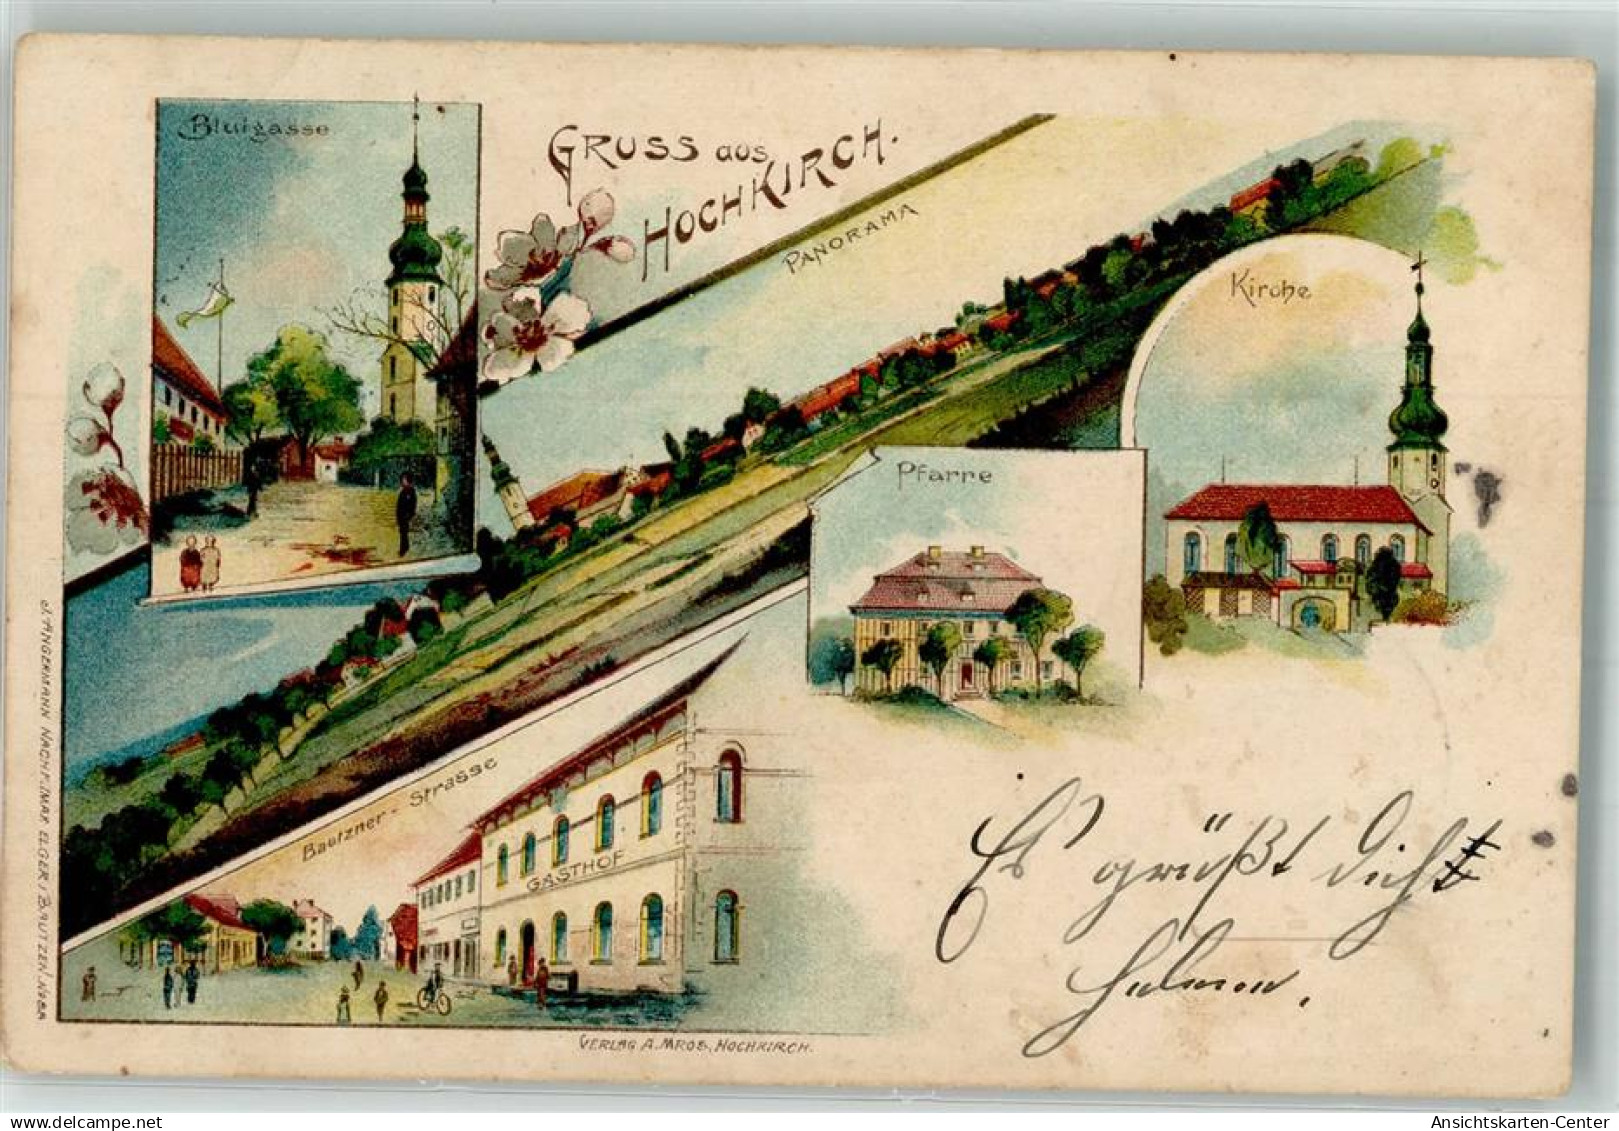 Blutgasse
GRUSS aus
HOCHKIRCH.
PANORAMA
Kirche
Pfarre
Bautzner-Strasse
GASTHOF
Es grüßt dich
VERLAG A. MROS, HOCHKIRCH.
J. ANGERMANN NACHF. MAX ELGER, BAUTZEN.
AnsichtskartenBoerse.de
Ansichtskarten-Center